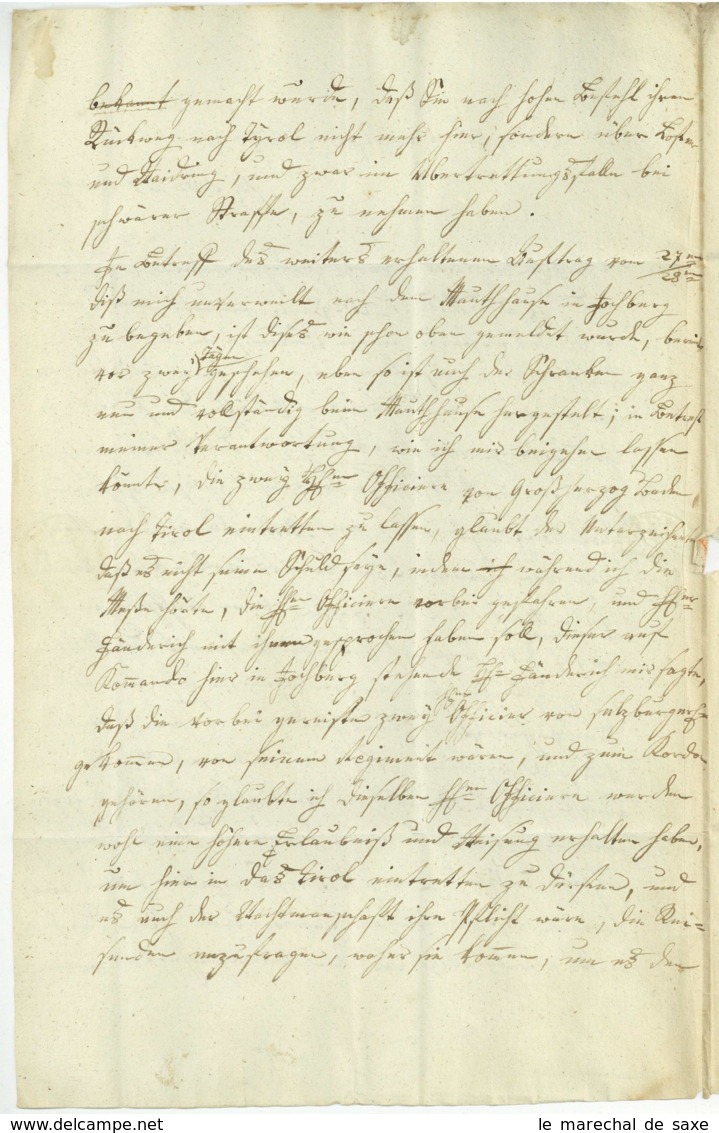 bekannt gemacht wurde, daß Sie nach hohen Befehl ihren
Rückweg nach Tyrol nicht mehr hier, sondern über
und Waidring, und zwar im Übertrettungsfalle bei
schwärer Straffe, zu nehmen haben.
In Betreff des weiters erhaltenen Auftrag vom 27ten/28ten
diß mich unverweilt nach dem Mauthhause in Jochberg
zu begeben, ist dises wie schon oben gemeldet wurde, bereits
vor zwey Tagen geschehen, eben so ist auch der Schranken ganz
neu und vollständig beim Mauthhause hergestelt; in Betreff
meiner Verantwortung, wie ich mir beigehen lassen
könnte, die zwey Hhen Officiere von Großherzog Baden
nach Tirol eintretten zu lassen, glaubt der Unterzeichnete
daß es nicht seine Schuld seye, indem ich während ich die
Meße hörte, die Hhen Officiere vorbei gefahren, und Herr
Fänderich mit ihnen gesprochen haben soll, dieser auf
Kommando hier in Jochberg stehende Hr Fänderich mir sagte,
daß die vorbei gereisten zwey Hhen Officier von salzburgischen
gekommen, von seinem Regiment wären, und zum Kordon
gehören, so glaubte ich dieselben Hhen Officiere werden
wohl eine höhere Erlaubniß und Weisung erhalten haben,
um hier in das Tirol eintretten zu dürfen, und
es auch der Wachtmanschaft ihre Pflicht wäre, die Rei=
senden anzufragen, woher sie kommen, um es dem
le marechal de saxe